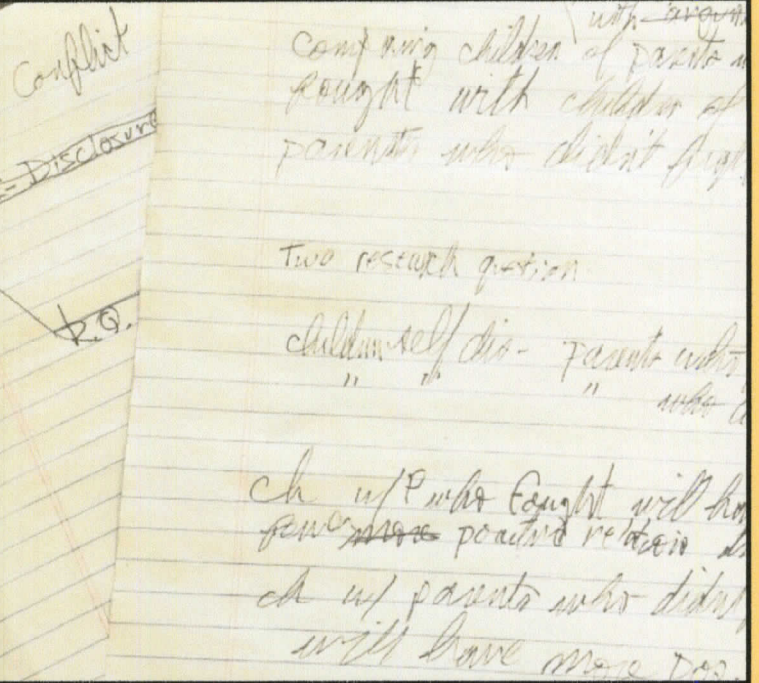 Conflict
Disclosure
R.Q.
with
Comparing children of parents
fought with children of
parents who didn't
Two research question
children self dis- parents who
" " " who
ch w/ P who fought will
fewer more positive relation
ch w/ parents who didn't
will have more pos.